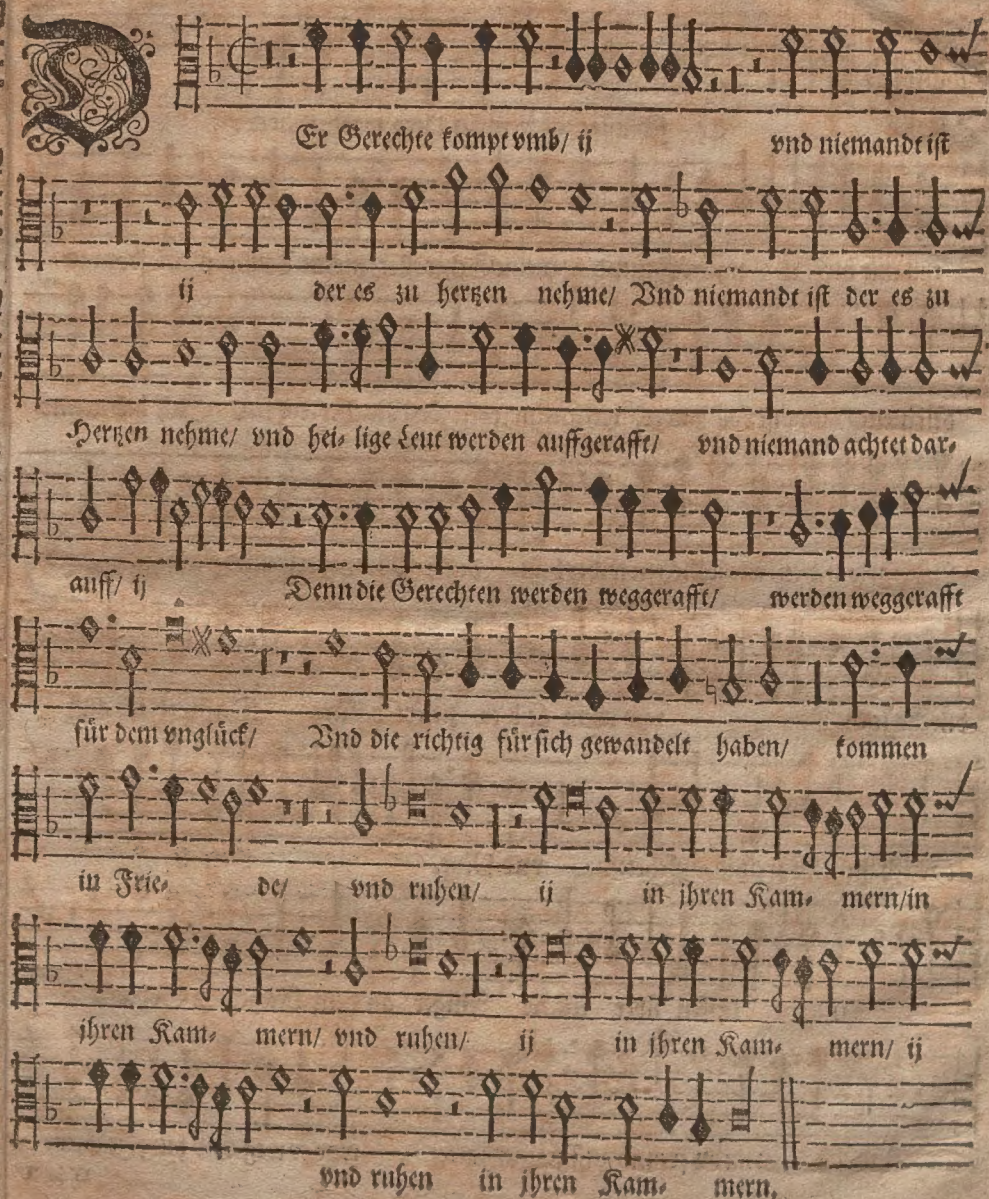 D
Er Gerechte kompt vmb/ ij vnd niemandt ist
ij der es zu hertzen nehme/ Vnd niemandt ist der es zu
Hertzen nehme/ vnd hei- lige Leut werden auffgerafft/ vnd niemand achtet dar-
auff/ ij Denn die Gerechten werden weggerafft/ werden weggerafft
für dem vnglück/ Vnd die richtig für sich gewandelt haben/ kommen
in Frie- de/ vnd ruhen/ ij in jhren Kam- mern/in
jhren Kam- mern/ vnd ruhen/ ij in jhren Kam- mern/ ij
vnd ruhen in jhren Kam- mern.